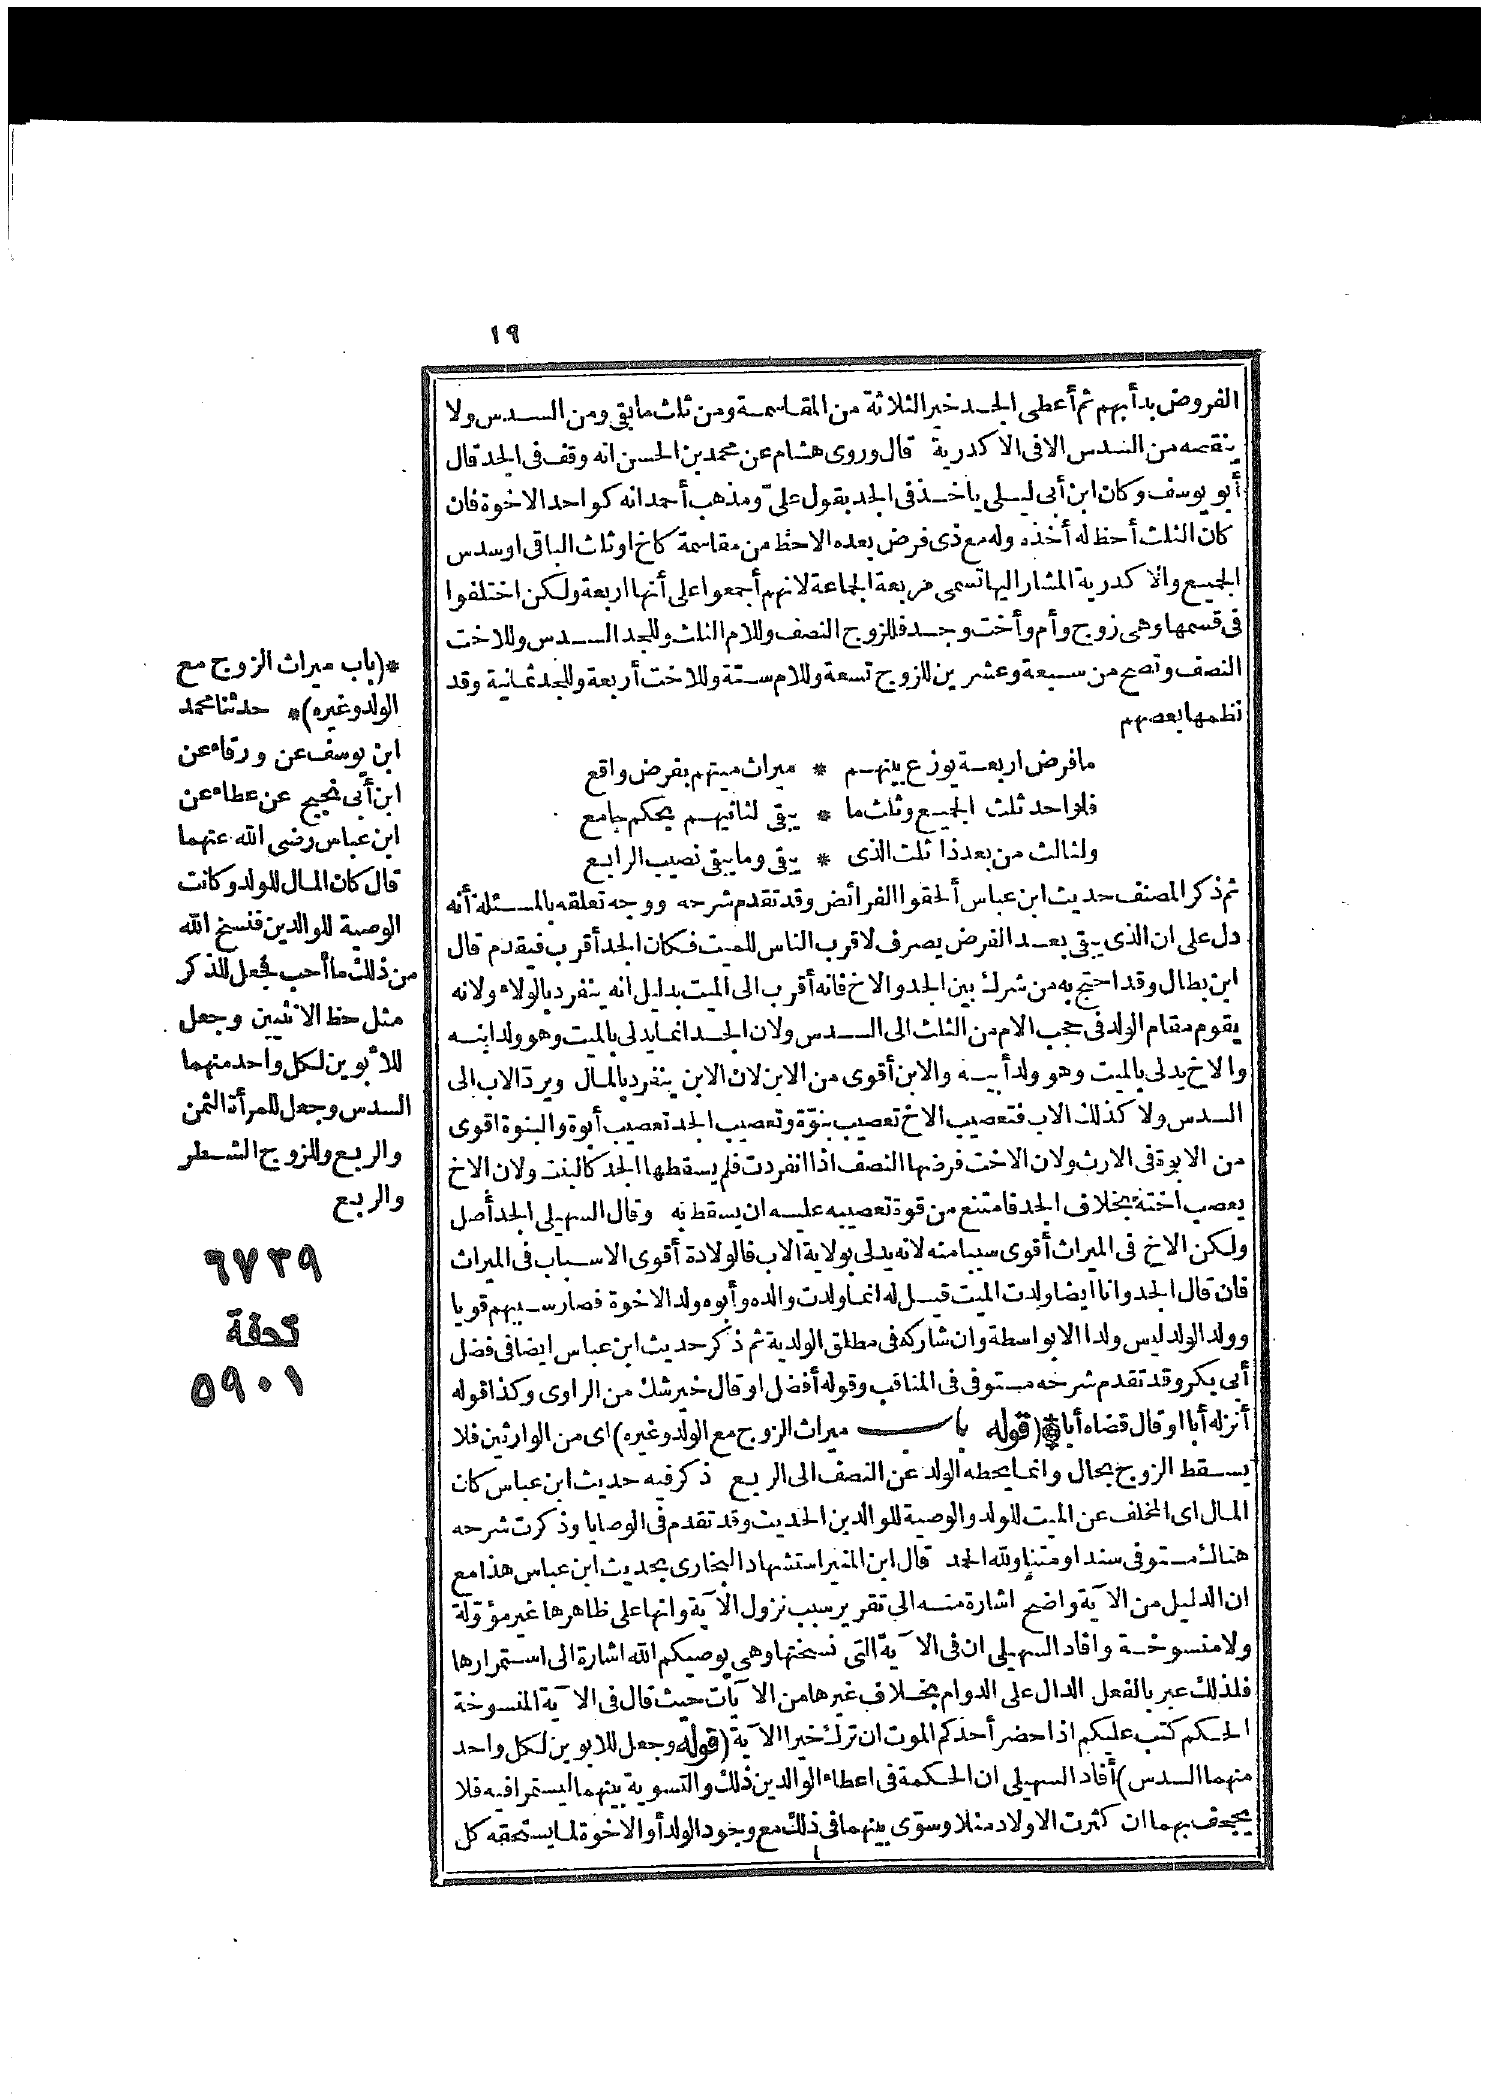 ١٩
الفروض بدأ بهم ثم أعطى الجد خير الثلاثة من المقاسمة ومن ثلث ما بقى ومن السدس ولا
ينقصه من السدس الا فى الاكدرية قال وروى هشام عن محمد بن الحسن انه وقف فى الجد قال
أبو يوسف وكان ابن أبى ليلى يأخذ فى الجد بقول على ومذهب أحمد انه كواحد الاخوة فان
كان الثلث أحظ له أخذه وله مع ذى فرض بعده الاحظ من مقاسمة كاخ او ثلث الباقى او سدس
الجميع والاكدرية المشار اليها تسمى مربعة الجماعة لانهم أجمعوا على أنها اربعة ولكن اختلفوا
فى قسمها وهى زوج وأم وأخت وجد فللزوج النصف وللام الثلث وللجد السدس وللاخت
النصف وتصح من سبعة وعشرين للزوج تسعة وللام ستة وللاخت أربعة وللجد ثمانية وقد
نظمها بعضهم
ما فرض اربعة يوزع بينهم * ميراث ميتهم بفرض واقع
فلواحد ثلث الجميع وثلث ما * يبقى لثانيهم بحكم جامع
ولثالث من بعد ذا ثلث الذى * يبقى وما يبقى نصيب الرابع
ثم ذكر المصنف حديث ابن عباس ألحقوا الفرائض وقد تقدم شرحه ووجه تعلقه بالمسئلة أنه
دل على ان الذى يبقى بعد الفرض يصرف لاقرب الناس للميت فكان الجد أقرب فيقدم قال
ابن بطال وقد احتج به من شرك بين الجد والاخ فانه أقرب الى الميت بدليل انه ينفرد بالولاء ولانه
يقوم مقام الولد فى حجب الام من الثلث الى السدس ولان الجد انما يدلى بالميت وهو ولد ابنه
والاخ يدلى بالميت وهو ولد أبيه والابن أقوى من الابن لان الابن ينفرد بالمال ويرد الاب الى
السدس ولا كذلك الاب فتعصيب الاخ تعصيب بنوّة وتعصيب الجد تعصيب أبوة والبنوة اقوى
من الابوة فى الارث ولان الاخت فرضها النصف اذا انفردت فلم يسقطها الجد كالبنت ولان الاخ
يعصب اخته بخلاف الجد فامتنع من قوة تعصيبه عليه ان يسقط به وقال السهيلى الجد أصل
ولكن الاخ فى الميراث أقوى سببا منه لانه يدلى بولاية الاب فالولادة أقوى الاسباب فى الميراث
فان قال الجد وانا ايضا ولدت الميت قيل له انما ولدت والده وأبوه ولد الاخوة فصار سببهم قويا
وولد الولد ليس ولدا الا بواسطة وان شاركه فى مطلق الولدية ثم ذكر حديث ابن عباس ايضا فى فضل
أبى بكر وقد تقدم شرحه مستوفى فى المناقب وقوله أفضل او قال خير شك من الراوى وكذا قوله
أنزله أبا او قال قضاه أبا * (قوله باب ميراث الزوج مع الولد وغيره) اى من الوارثين فلا
يسقط الزوج بحال وانما يحطه الولد عن النصف الى الربع ذكر فيه حديث ابن عباس كان
المال اى المخلف عن الميت للولد والوصية للوالدين الحديث وقد تقدم فى الوصايا وذكرت شرحه
هناك مستوفى سندا ومتنا ولله الحمد قال ابن المنير استشهاد البخارى بحديث ابن عباس هذا مع
ان الدليل من الآية واضح اشارة منه الى تقرير سبب نزول الآية وانها على ظاهرها غير مؤوّلة
ولا منسوخة وافاد السهيلى ان فى الآية التى نسختها وهى يوصيكم الله اشارة الى استمرارها
فلذلك عبر بالفعل الدال على الدوام بخلاف غيرها من الآيات حيث قال فى الآية المنسوخة
الحكم كتب عليكم اذا حضر أحدكم الموت ان ترك خيرا الآية (قوله وجعل للابوين لكل واحد
منهما السدس) أفاد السهيلى ان الحكمة فى اعطاء الوالدين ذلك والتسوية بينهما ليستمرا فيه فلا
يجحف بهما ان كثرت الاولاد مثلا وسوّى بينهما فى ذلك مع وجود الولد أو الاخوة لما يستحقه كل
*(باب ميراث الزوج مع
الولد وغيره)* حدثنا محمد
ابن يوسف عن ورقاء عن
ابن أبى نجيح عن عطاء عن
ابن عباس رضى الله عنهما
قال كان المال للولد وكانت
الوصية للوالدين فنسخ الله
من ذلك ما أحب فجعل للذكر
مثل حظ الانثيين وجعل
للأبوين لكل واحد منهما
السدس وجعل للمرأة الثمن
والربع وللزوج الشطر
والربع
٦٧٣٩
تحفة
٥٩٠١